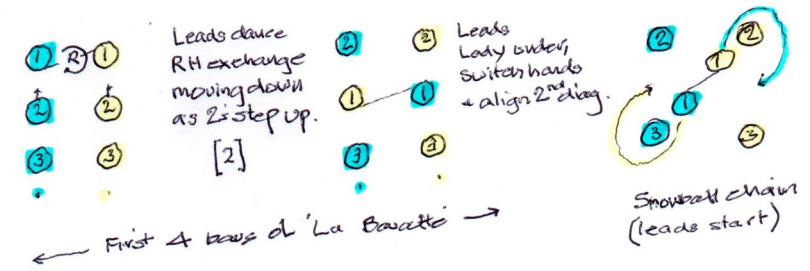 1 R 1
2 2
3 3
Leads dance
RH exchange
moving down
as 2s step up.
[2]
2 2
1 1
3 3
Leads
Lady under,
switch hands
+ align 2nd diag.
2 2
1
1
3 3
Snowball chain
(leads start)
← First 4 bars of 'La Baratte' →